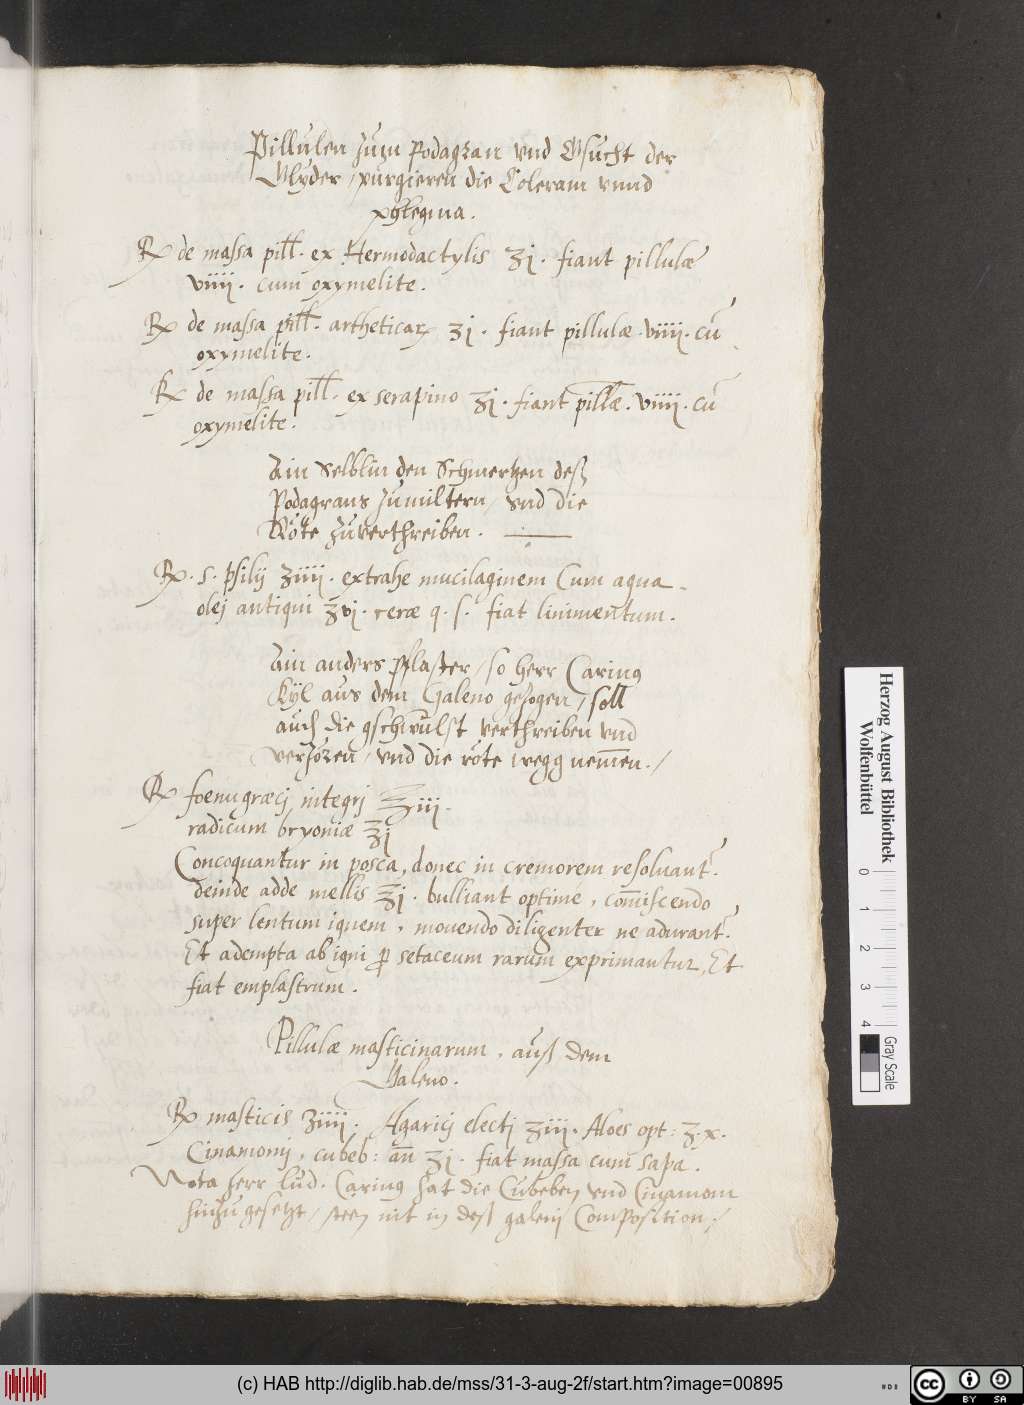 Pillulen zum Podagran vnd Gsucht der
Glyder / purgieren die Coleram vnnd
phlegma.
℞ de massa pill. ex Hermodactylis ʒj. fiant pillulæ
viiij. cum oxymelite.
℞ de massa pill. artheticar ʒj. fiant pillulæ. viiij. cū
oxymelite.
℞ de massa pill. ex serapino ʒj. fiant pillæ. viiij. cū
oxymelite.
Ain Selblin den Schmertzen deß
Podagrans zumiltern / vnd die
Röte zuverthreiben.
℞. s. psilij ʒiiij. extrahe mucilaginem Cum aqua
olej antiqui ʒvj. ceræ q. s. fiat linimentum.
Ain anders Pflaster / so herr Carinus
Kyl aus dem Galeno gezogen / soll
auch die gschwulst verthreiben vnd
verzören / vnd die röte wegg nem̄en. /
℞ foenugræcj integrj ℥iij.
radicum bryoniæ ℥j
Concoquantur in posca, donec in cremorem resoluant.
deinde adde mellis ℥j. bulliant optime, com̄iscendo
super lentum iquem, mouendo diligenter ne adurant.
Et adempta ab igni ꝑ setaceum rarum exprimantur, Et
fiat emplastrum.
Pillulæ masticinarum, auß dem
Galeno.
℞ masticis ʒiiij. Agaricj electj ʒiij. Aloes opt: ʒ.x.
Cinamonij, cubeb: añ ʒj. fiat massa cum sapa.
Nota herr Lud. Carinus hat die Cubeben vnd Cinamom
hinzu gesetzt / steen nit in deß galenj Composition /
Herzog August Bibliothek
Wolfenbüttel
0 1 2 3 4
Gray Scale
(c) HAB http://diglib.hab.de/mss/31-3-aug-2f/start.htm?image=00895
cc BY SA